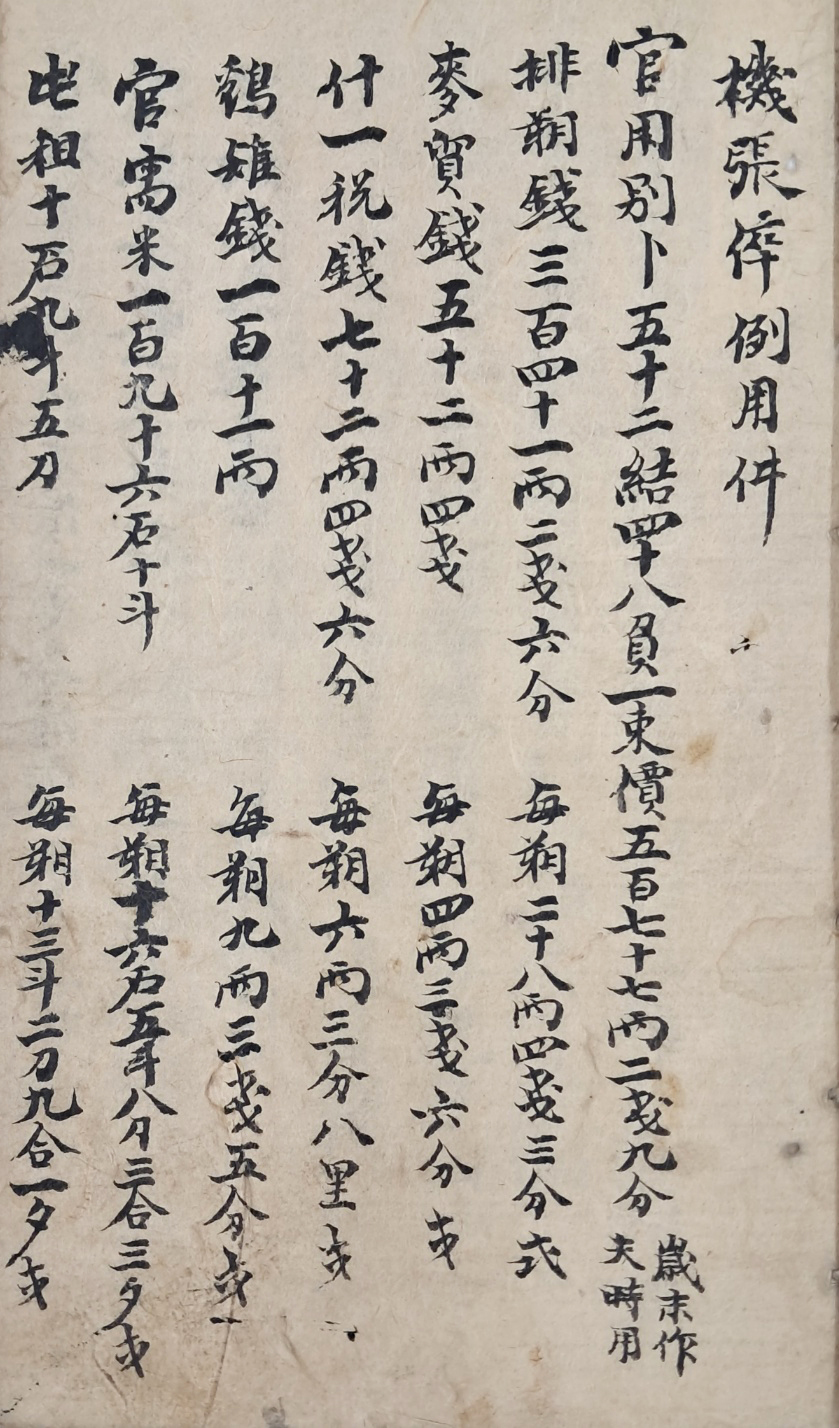 機張倅例用件
官用別卜五十二結四十八負一束價五百七十七兩二戔九分 歲末作夫時用
排朔錢三百四十一兩二戔六分 每朔二十八兩四戔三分式
麥貿錢五十二兩四戔 每朔四兩三戔六分式
什一稅錢七十二兩四戔六分 每朔六兩三分八里式
鷄雉錢一百十一兩 每朔九兩三戔五分式
官需米一百九十六石十斗 每朔十六石五斗八刀三合三夕式
屯租十石九斗五刀 每朔十三斗二刀九合一夕式